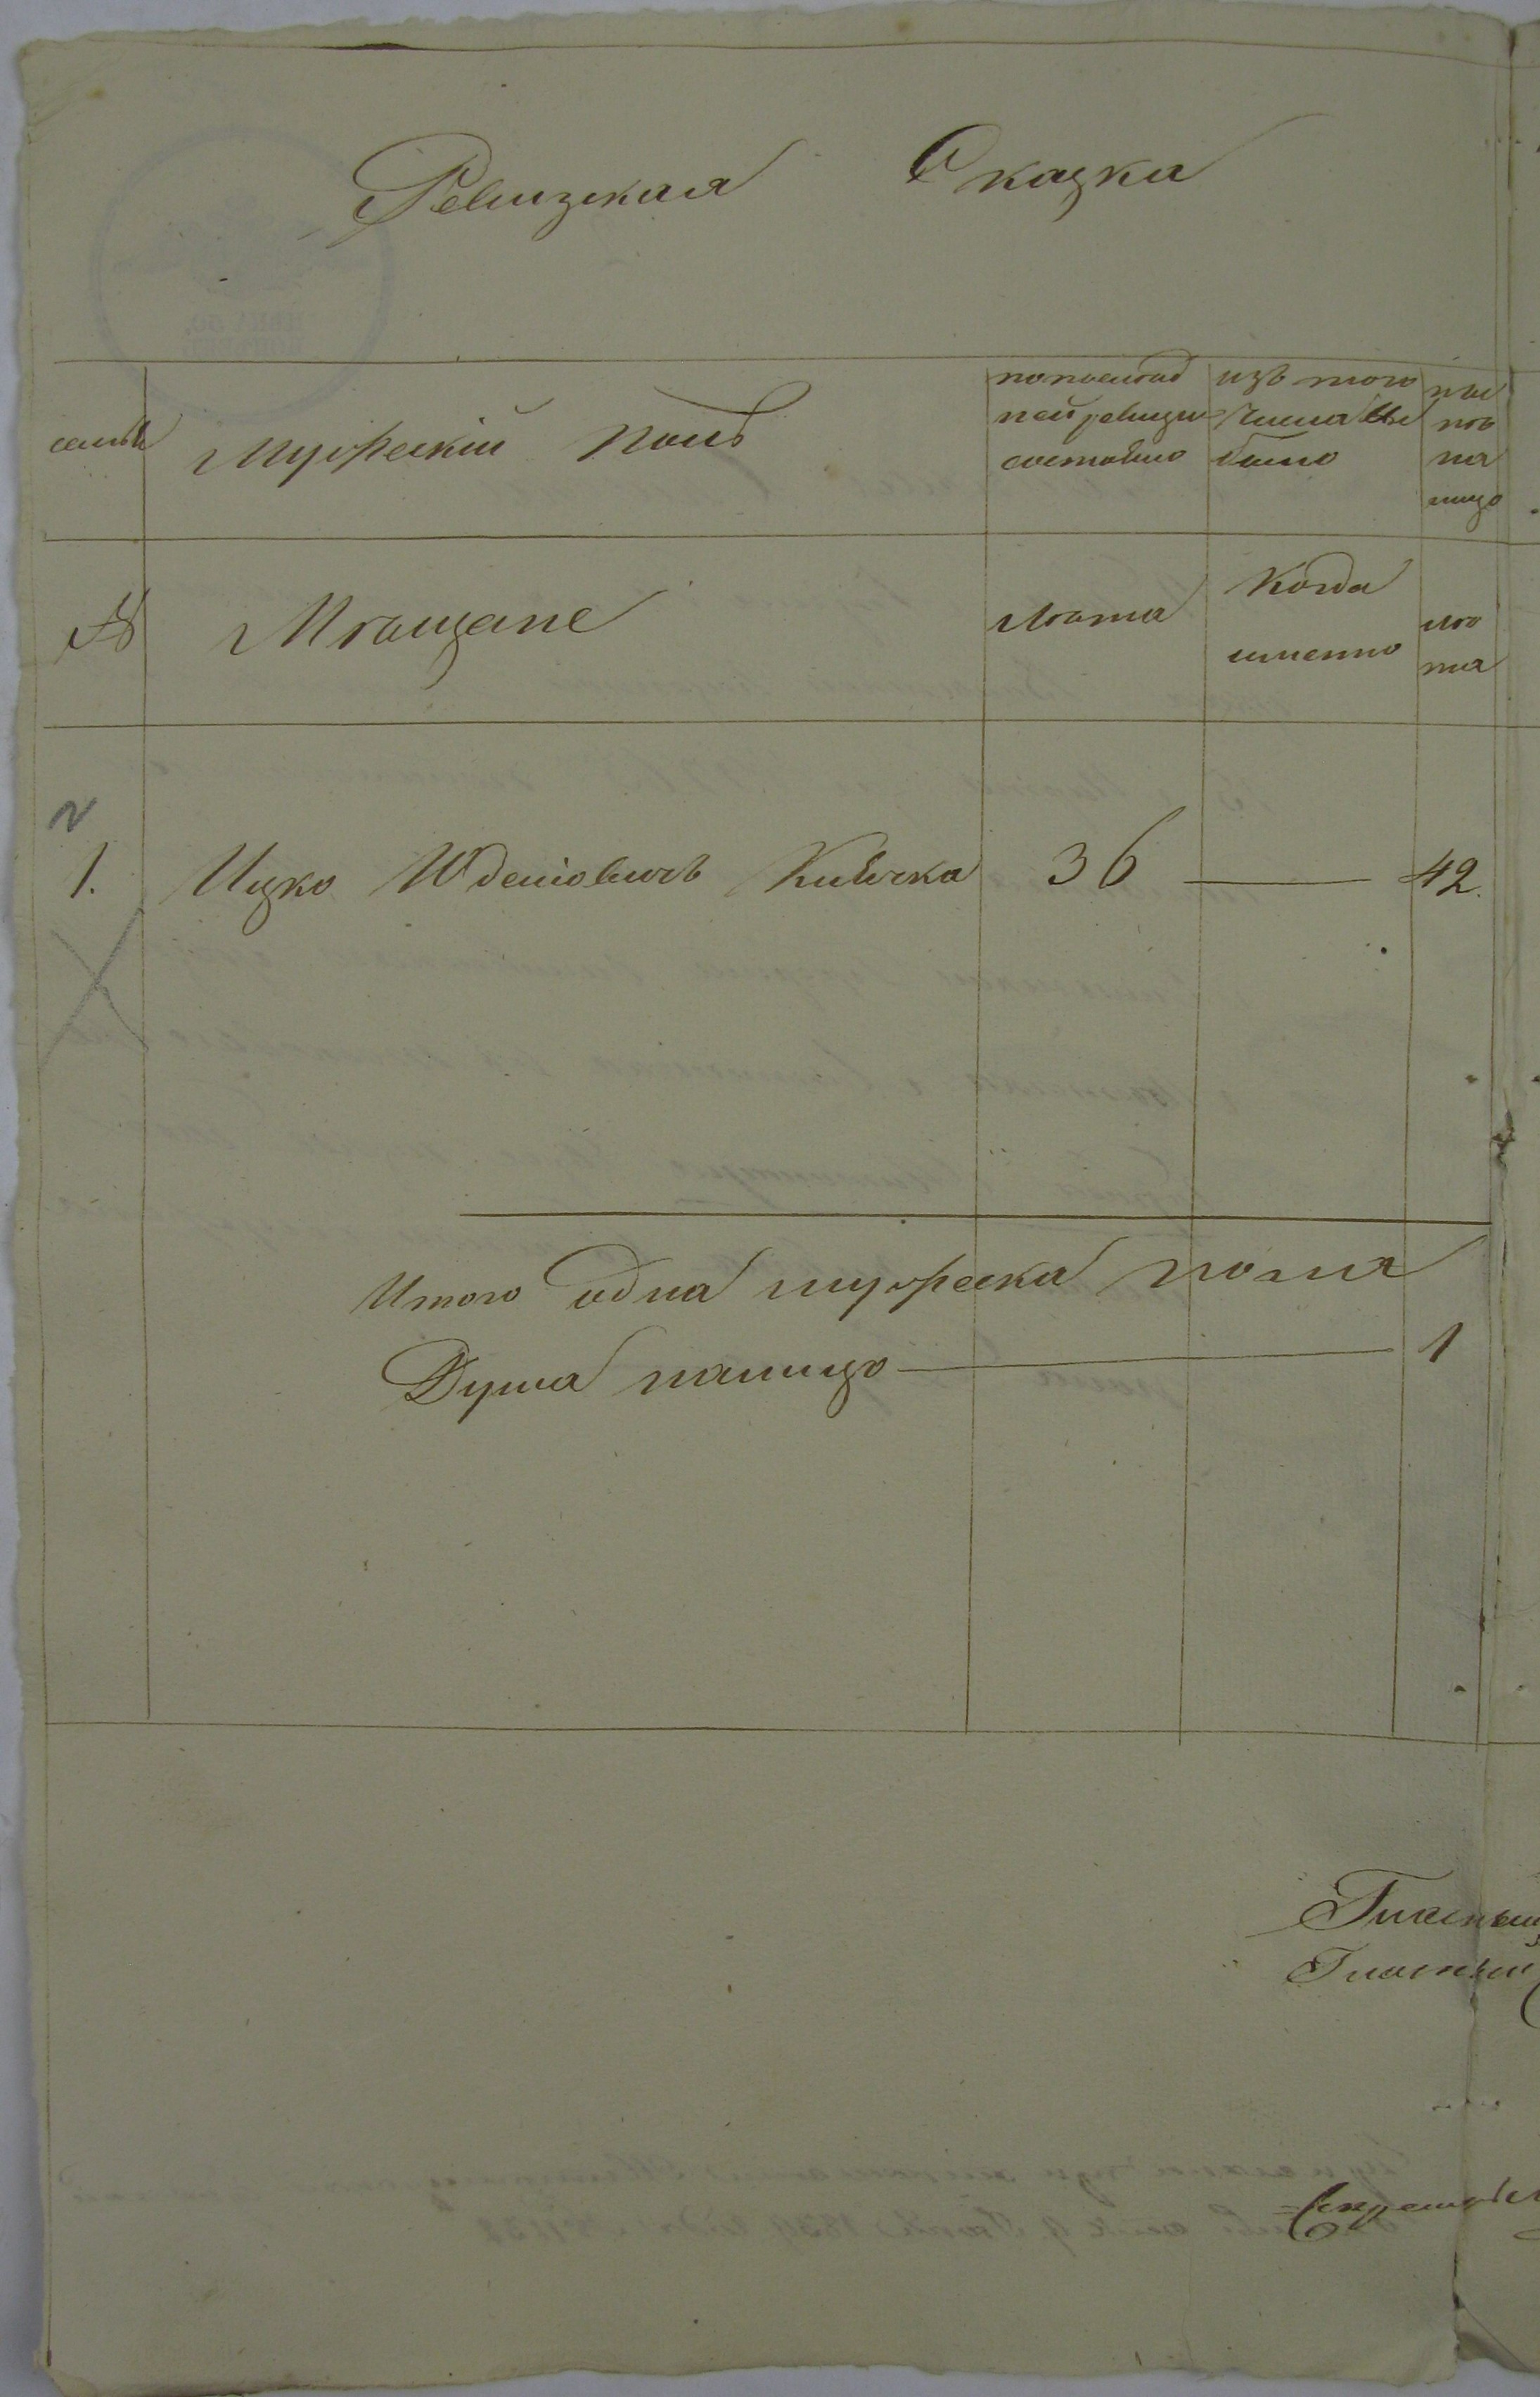 Ревизская Сказка
семьи
Мужескій полъ
попослед
ней ревизи
состояло
изъ того
числа вы
было
ны
не
на
лицо
№
Мѣщане
Лѣта
Когда
именно
лѣ
та
1. Ицко Юделіовичъ 36 — 42.
Итого одна мужеска пола
Душа налицо — 1
Гласный
Гласный